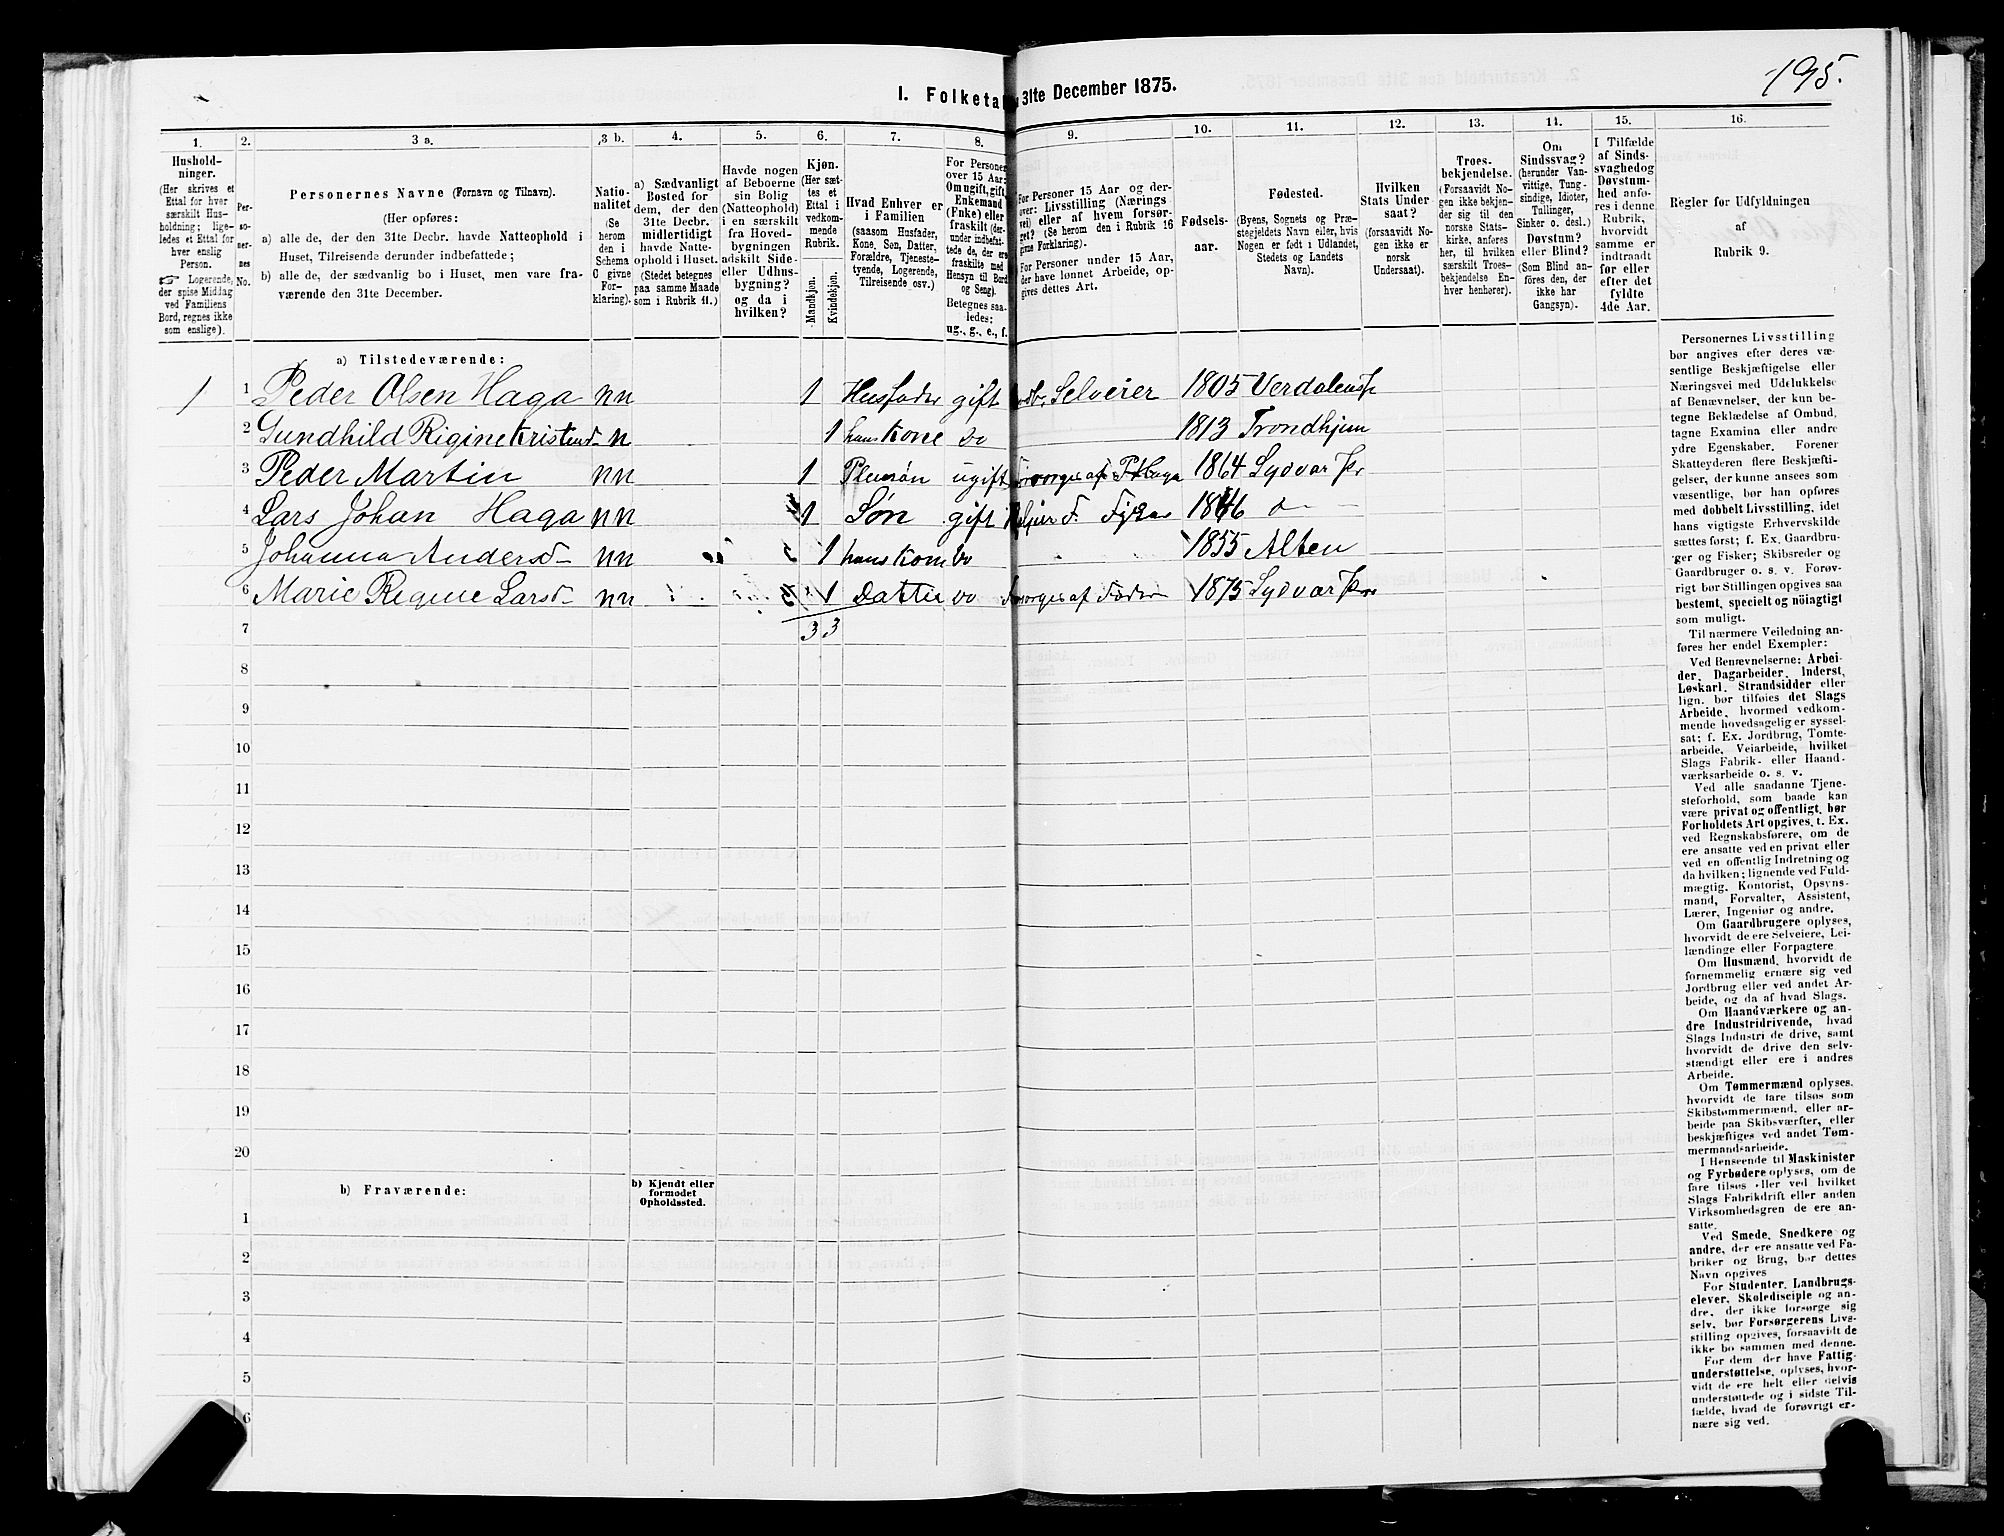 195.
I. Folketa 31te December 1875.
1. 2. 3 a. 3 b. 4. 5. 6. 7. 8. 9. 10. 11. 12. 13. 14. 15. 16.
Hushold-
ninger.
(Her skrives et
Ettal for hver
særskilt Hus-
holdning; lige-
ledes et Ettal for
hver enslig
Person.
☞ Logerende,
der spise Middag
ved Familiens
Bord, regnes ikke
som enslige).
Per-
so-
ner-
nes
No.
Personernes Navne (Fornavn og Tilnavn).
(Her opføres:
a) alle de, der den 31te Decbr. havde Natteophold i
Huset, Tilreisende derunder indbefattede;
b) alle de, der sædvanlig bo i Huset, men vare fra-
værende den 31te December.
Natio-
nalitet
(Se
herom
den i
Schema
C givne
For-
klaring).
a) Sædvanligt
Bosted for
dem, der den
31te Decbr.
midlertidigt
havde Natte-
ophold i Huset.
(Stedet betegnes
paa samme Maade
som i Rubrik 11.)
Havde nogen
af Beboerne
sin Bolig
(Natteophold)
i en særskilt
fra Hoved-
bygningen
adskilt Side-
eller Udhus-
bygning?
og da i
hvilken?
Kjøn.
(Her sæt-
tes et
Ettal i
vedkom-
mende
Rubrik.
Mandkjøn.
Kvindekjøn.
Hvad Enhver er
i Familien
(saasom Husfader,
Kone, Søn, Datter,
Forældre, Tjeneste-
tyende, Logerende,
Tilreisende osv.)
For Personer
over 15 Aar:
Om ugift, gift,
Enkemand
(Enke) eller
fraskilt (der-
under indbefat-
tede de, der ere
fraskilte med
Hensyn til Bord
og Seng).
Betegnes saa-
ledes:
ug., g., e., f.
For Personer 15 Aar og der-
over: Livsstilling (Nærings-
vei) eller af hvem forsør-
get? (Se herom den i Rubrik 16
givne Forklaring).
For Personer under 15 Aar,
der have lønnet Arbeide, op-
gives dettes Art.
Fødsels-
aar.
Fødested.
(Byens, Sognets og Præ-
stegjeldets Navn eller, hvis
Nogen er født i Udlandet,
Stedets og Landets
Navn).
Hvilken
Stats Under-
saat?
(forsaavidt No-
gen ikke er
norsk
Undersaat).
Troes-
bekjendelse.
(Forsaavidt No-
gen ikke bekjen-
der sig til den
norske Stats-
kirke, anføres
her, til hvilken
særskilt Troes-
bekjendelse En-
hver henhører).
Om
Sindssvag?
(herunder Van-
vittige, Tung-
sindige, Idioter,
Tullinger,
Sinker o. desl.)
Døvstum?
eller Blind?
(Som Blind an-
føres den, der
ikke har
Gangsyn).
I Tilfælde
af Sinds-
svaghed og
Døvstum-
hed anfø-
res i denne
Rubrik,
hvorvidt
samme er
indtraadt
før eller
efter det
fyldte
4de Aar.
Regler for Udfyldningen
af
Rubrik 9.
a) Tilstedeværende:
1 1 Peder Olsen Haga nn 1 Husfader gift Selveier 1805 Verdalens
2 Gundhild Rigine n 1 hans kone do 1813 Trondhjem
3 Peder Martin nn 1 Pleiesøn ugift af Haga 1864 Lydvar Pr
4 Lars Johan Haga nn 1 Søn gift F. 18
5 Johanna Andersd nn 1 hans kone do 1855 Alten
6 Marie Regine Larsd nn 1 Datter do Forsørges af Fader 1875 Lydvar Pr
7 3 3
8
9
10
11
12
13
14
15
16
17
18
19
20
b) Fraværende:
b) Kjendt eller
formodet
Opholdssted.
1
2
3
4
5
6
Personernes Livsstilling
bør angives efter deres væ-
sentlige Beskjæftigelse eller
Næringsvei med Udelukkelse
af Benævnelser, der kun be-
tegne Beklædelse af Ombud,
tagne Examina eller andre
ydre Egenskaber. Forener
Skatteyderen flere Beskjæfti-
gelser, der kunne ansees som
væsentlige, bør han opføres
med dobbelt Livsstilling, idet
hans vigtigste Erhvervskilde
sættes først; f. Ex. Gaardbru-
ger og Fisker; Skibsreder og
Gaardbruger o. s. v. Forøv-
rigt bør Stillingen opgives saa
bestemt, specielt og nöiagtigt
som muligt.
Til nærmere Veiledning an-
føres her endel Exempler:
Ved Benævnelserne: Arbei-
der, Dagarbeider, Inderst,
Løskarl, Strandsidder eller
lign. bør tilføies det Slags
Arbeide, hvormed vedkom-
mende hovedsagelig er syssel-
sat; f. Ex. Jordbrug, Tomte-
arbeide, Veiarbeide, hvilket
Slags Fabrik- eller Haand-
værksarbeide o. s. v.
Ved alle saadanne Tjene-
steforhold, som baade kan
være privat og offentligt, bør
Forholdets Art opgives, t. Ex.
ved Regnskabsførere, om de
ere ansatte ved en privat eller
ved en offentlig Indretning og
da hvilken; lignende ved Fuld-
mægtig, Kontorist, Opsyns-
mand, Forvalter, Assistent,
Lærer, Ingeniør og andre.
Om Gaardbrugere oplyses,
hvorvidt de ere Selveiere, Lei-
lændinge eller Forpagtere.
Om Husmænd, hvorvidt de
fornemmelig ernære sig ved
Jordbrug eller ved andet Ar-
beide, og da af hvad Slags.
Om Haandværkere og an-
dre Industridrivende, hvad
Slags Industri de drive, samt
hvorvidt de drive den selv-
stændigt eller ere i andres
Arbeide.
Om Tømmermænd oplyses,
hvorvidt de fare tilsøs som
Skibstømmermænd, eller ar-
beide paa Skibsværfter, eller
beskjæftiges ved andet Tøm-
mermandsarbeide.
I Henseende til Maskinister
og Fyrbødere oplyses, om de
fare tilsøs eller ved hvilket
Slags Fabrikdrift eller anden
Virksomhedsgren de ere an-
satte.
Ved Smede, Snedkere og
andre, der ere ansatte ved Fa-
briker og Brug, bør dettes
Navn opgives
For Studenter, Landbrugs-
elever, Skoledisciple og an-
dre, der ikke forsørge sig
selv, bør Forsørgerens Livs-
stilling opgives, forsaavidt de
ikke bo sammen med denne.
For dem, der have Fattig-
understøttelse, oplyses, hvor-
vidt de ere helt eller delvis
understøttede og i sidste Til-
fælde, hvad de forøvrigt er-
nære sig ved.